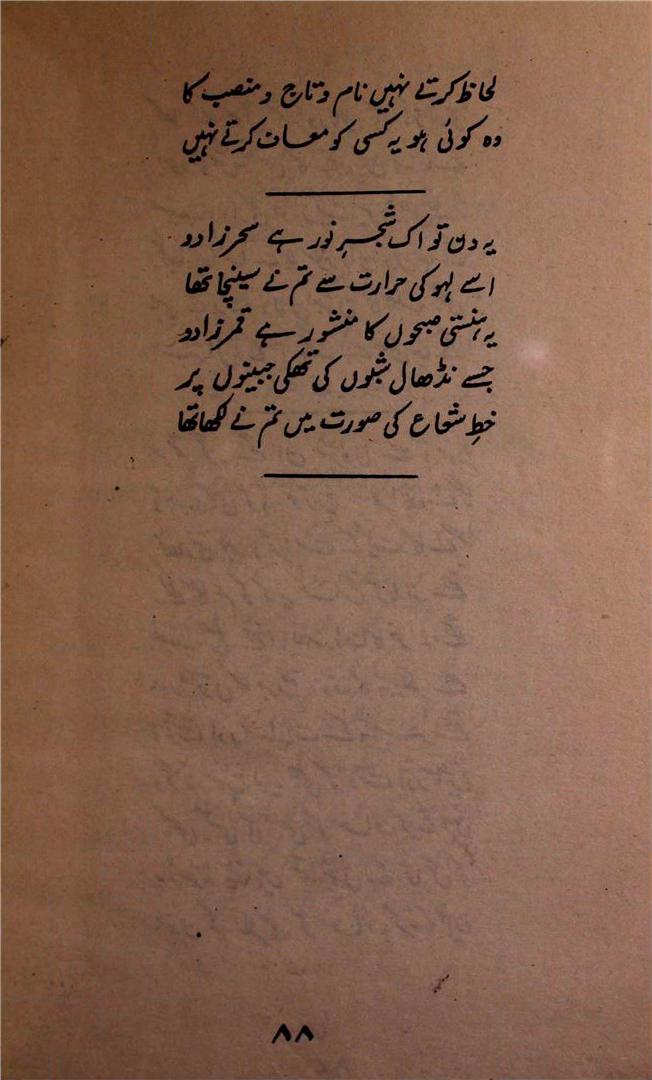 لحاظ کرتے نہیں نام و تاج و منصب کا
وہ کوئی ہو یہ کسی کو معاف کرتے نہیں
یہ دن تو اک شجرِ نور ہے سحر زادو
اسے لہو کی حرارت سے تم نے سینچا تھا
یہ ہنستی صبحوں کا منشور ہے قمر زادو
جسے نڈھال شبوں کی تھکی جبینوں پر
خطِ شعاع کی صورت میں تم نے لکھا تھا
۸۸